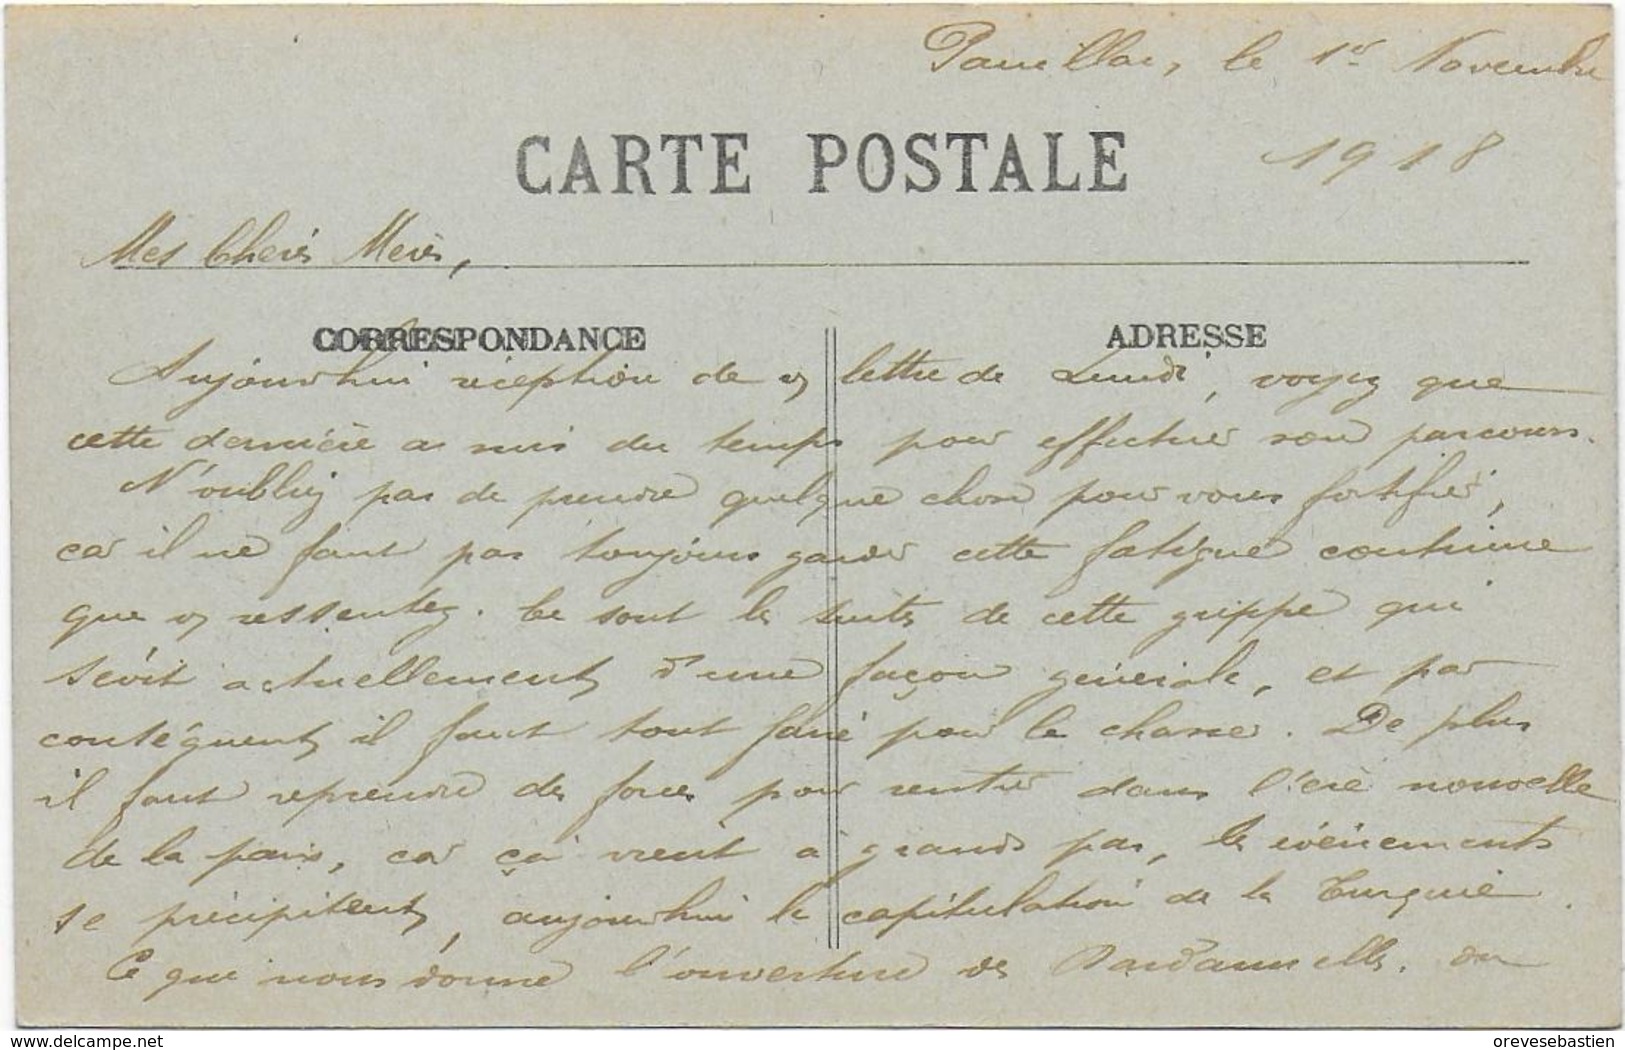 Pauillac, le 1er Novembre
1918
CARTE POSTALE
Mes Chères Mères,
CORRESPONDANCE
ADRESSE
Aujourd'hui réception de v/ lettre de Lundi, voyez que
cette dernière a mis du temps pour effectuer son parcours.
N'oubliez pas de prendre quelque chose pour vous fortifier,
car il ne faut pas toujours garder cette fatigue continue
que v/ ressentez. Ce sont les suites de cette grippe qui
sévit actuellement d'une façon générale, et par
conséquent il faut tout faire pour la chasser. De plus
il faut reprendre des forces pour rentrer dans l'ère nouvelle
de la paix, car ça vient à grands pas, les événements
se précipitent, aujourd'hui la capitulation de la Turquie.
Ce qui nous donne l'ouverture des Dardannelles. du
delcampe.net
orevesebastien